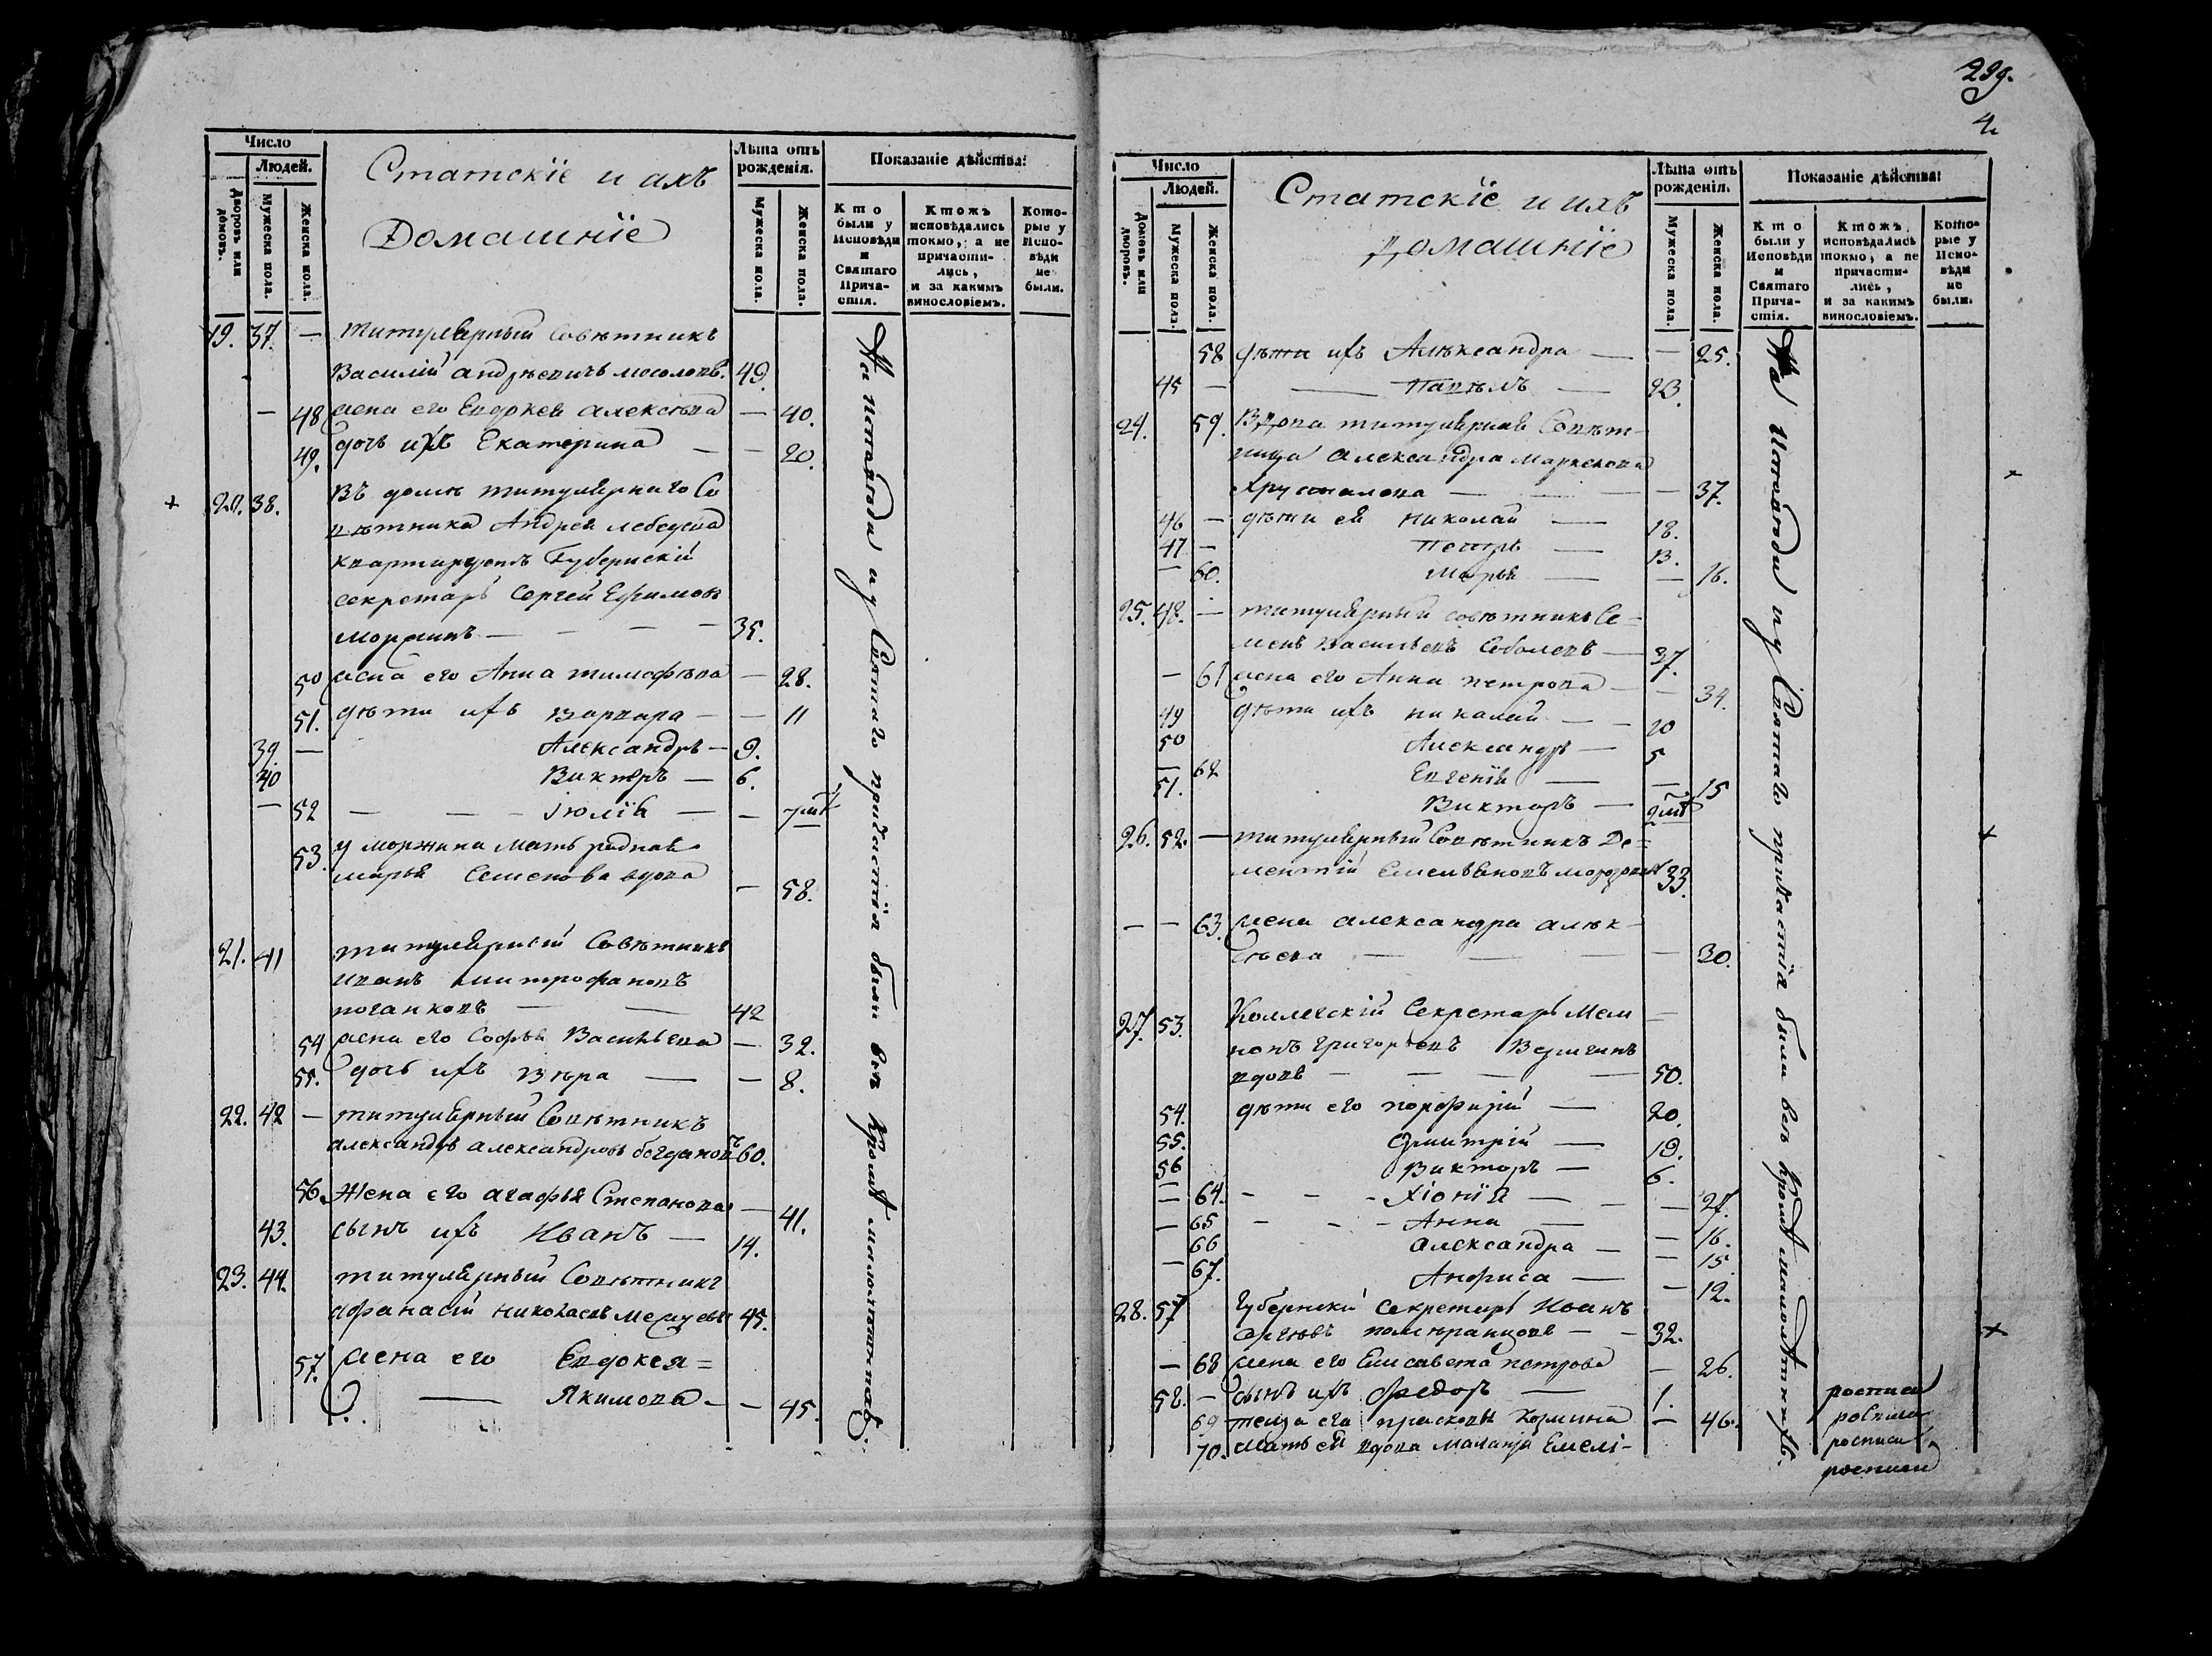 299.
4
Число
Людей.
Дворовъ или домовъ.
Мужеска пола.
Женска пола.
Статскіе и ихъ
Домашніе
Лѣта отъ рожденія.
Мужеска пола.
Женска пола.
Показаніе дѣйства:
Кто были у Исповѣди и Святаго Причастія.
Ктожъ исповѣдались токмо, а не причастились, и за какимъ винословіемъ.
Которые у Исповѣди не были.
19. 37. — титулярный совѣтникъ
Василій андрѣевичъ мосоловъ. 49.
— 48 жена его Евдокея алексѣва — 40.
49. дочь ихъ Екатерина — — 20.
+ 20. 38. Въ доме титулярнаго Со
вѣтника Андрея лебедева
квартируетъ Губернскій
секретарь Сергей Ефимовъ
моржинъ — — — — 35.
50 жена его Анна тимофѣва — 28.
51. дѣти ихъ Варвара — — 11
39. — Александръ — 9.
40 Викторъ — 6.
— 52 — — — Іюлія — —
53. у моржина мать родная
марья Семенова вдова — 58.
21. 41 титулярный Совѣтникъ
иванъ митрофановъ
поганковъ — — 42
54 жена его Софья Васильева — 32.
55. дочь ихъ Вѣра — — 8.
22. 42 — титулярный Совѣтникъ
александръ александровъ богдановъ 60.
56. Жена его агафья Степанова — 41.
43. сынъ ихъ Иванъ — 14.
23. 44. титулярный Совѣтникъ
афанасій николаевъ 45.
57. жена его Евдокея =
— Якимова — — 45.
На исповѣди и у Святаго причастія были всѣ кромѣ малолѣтнихъ.
Число
Людей.
Домовъ или дворовъ.
Мужеска пола.
Женска пола.
Статскіе и ихъ
домашніе
Лѣта отъ рожденія.
Мужеска пола.
Женска пола.
Показаніе дѣйства:
Кто были у Исповѣди и Святаго Причастія.
Ктожъ исповѣдались токмо, а не причастились, и за какимъ винословіемъ.
Которые у Исповѣди не были.
58 дѣти ихъ Алѣксандра — — 25.
45 — — Павѣлъ — 23.
24. 59. Вдова титулярная Совѣт-
ница александра маркелова
хрусталова — — — — 37.
46 — дѣти ея николай — 18.
47 — Петръ — 13.
— 60. Марья — — 16.
25. 48. — титулярный совѣтникъ Се-
менъ Васильевъ Соболевъ — 37.
— 61 жена его Анна петрова — — 34.
49 дѣти ихъ николай — — 20
50 Александръ — 5
— 62 Евгенія — — 15
51. Викторъ —
26. 52. — титулярный Совѣтникъ Де=
ментій Емельяновъ морозовъ 33.
— — 63. жена александра алѣк-
сѣева — — — — 30.
27. 53. Коллежскій Секретарь Мем
нонъ григорьевъ Веригинъ
вдовъ — — — — 50.
54. дѣти его порфирій — 20.
55. дмитрій — 19.
56 Викторъ — 6.
— 64. — — — Хіонія — — — 27.
— 65 — — — Анна — — 16.
66 александра — — 15
— 67. Анфиса — — 12.
28. 57 губернскій секретарь Иванъ
Сергѣевъ померанцовъ — — 32.
— 68 жена его Елисавета петрова — 26.
58. — сынъ ихъ Федоръ — 1.
69 теща его прасковья — 46.
70. мать ея вдова маланья Емелі-
На исповѣди и у Святаго причастія были всѣ кромѣ малолѣтнихъ.
росписи
росписи
росписи
росписи